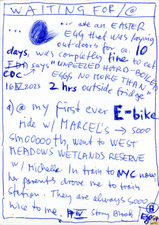 WAITING FOR/@
... ate an EASTER
EGG that was laying
outdoors for a 10
days, was completely fine to eat
FDA says "UNPEELED HARD-BOILED
CDC EGGS NO MORE THAN
16 IV 2023 2 hrs outside fridge"
1) @ my first ever E-bike
ride w/ MARCEL's → sooo
smooooth, went to WEST
MEADOWS WETLANDS RESERVE
w/ Michelle. In train to NYC now
her parents drove me to train
station. They are always sooo
nice to me. Stony Brook